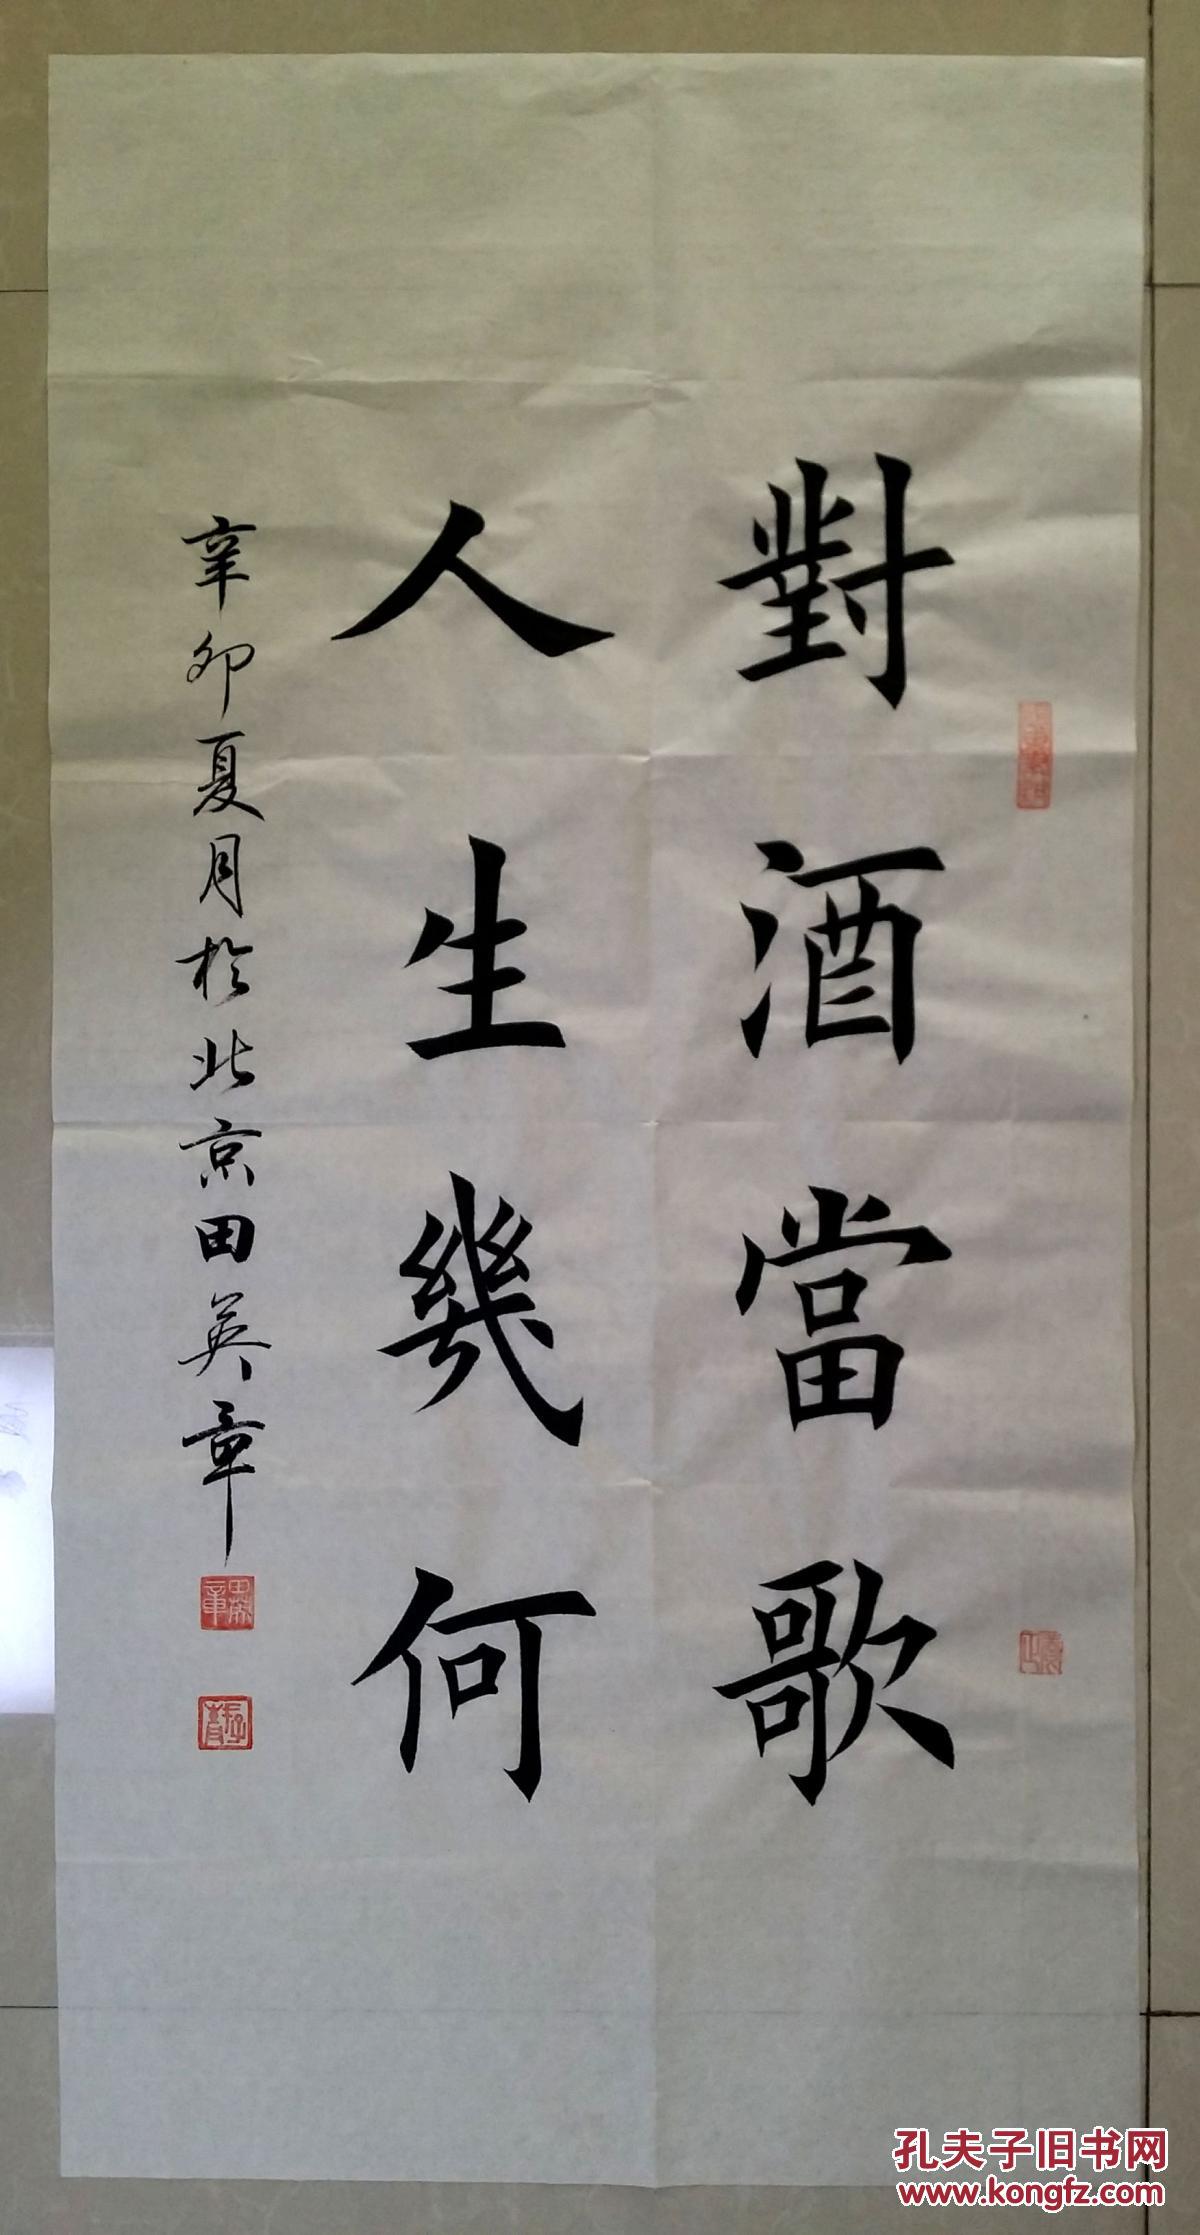 對酒當歌
人生幾何
辛卯夏月於北京田英章
孔夫子旧书网
www.kongfz.com